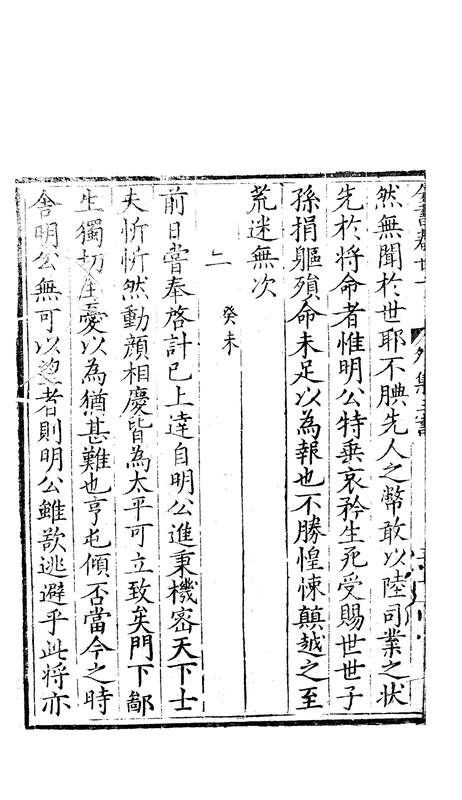 然無聞於世耶不腆先人之幣敢以陸司業之狀
先於將命者惟明公特垂哀矜生死受賜世世子
孫捐軀殞命未足以為報也不勝惶悚顛越之至
荒迷無次
二 癸未
前日嘗奉啓計已上達自明公進秉機密天下士
夫忻忻然動顏相慶皆為太平可立致矣門下鄙
生獨切憂以為猶甚難也亨屯傾否當今之時
舍明公無可以望者則明公雖欲逃避乎此將亦